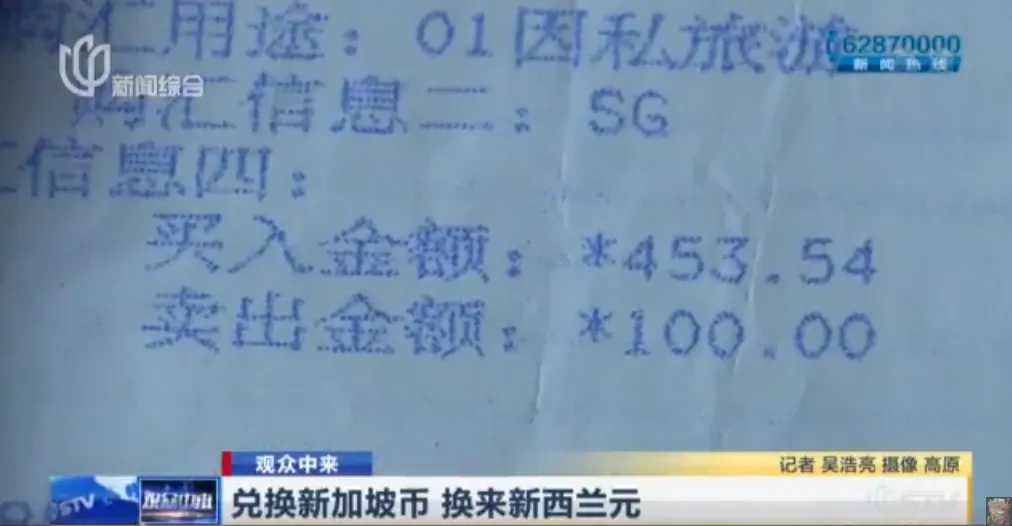 购汇用途：01因私旅游
62870000
新闻热线
新闻综合
购汇信息二：SG
信息四：
买入金额：*453.54
卖出金额：*100.00
观众中来
记者 吴浩亮 摄像 高原
兑换新加坡币 换来新西兰元
STV